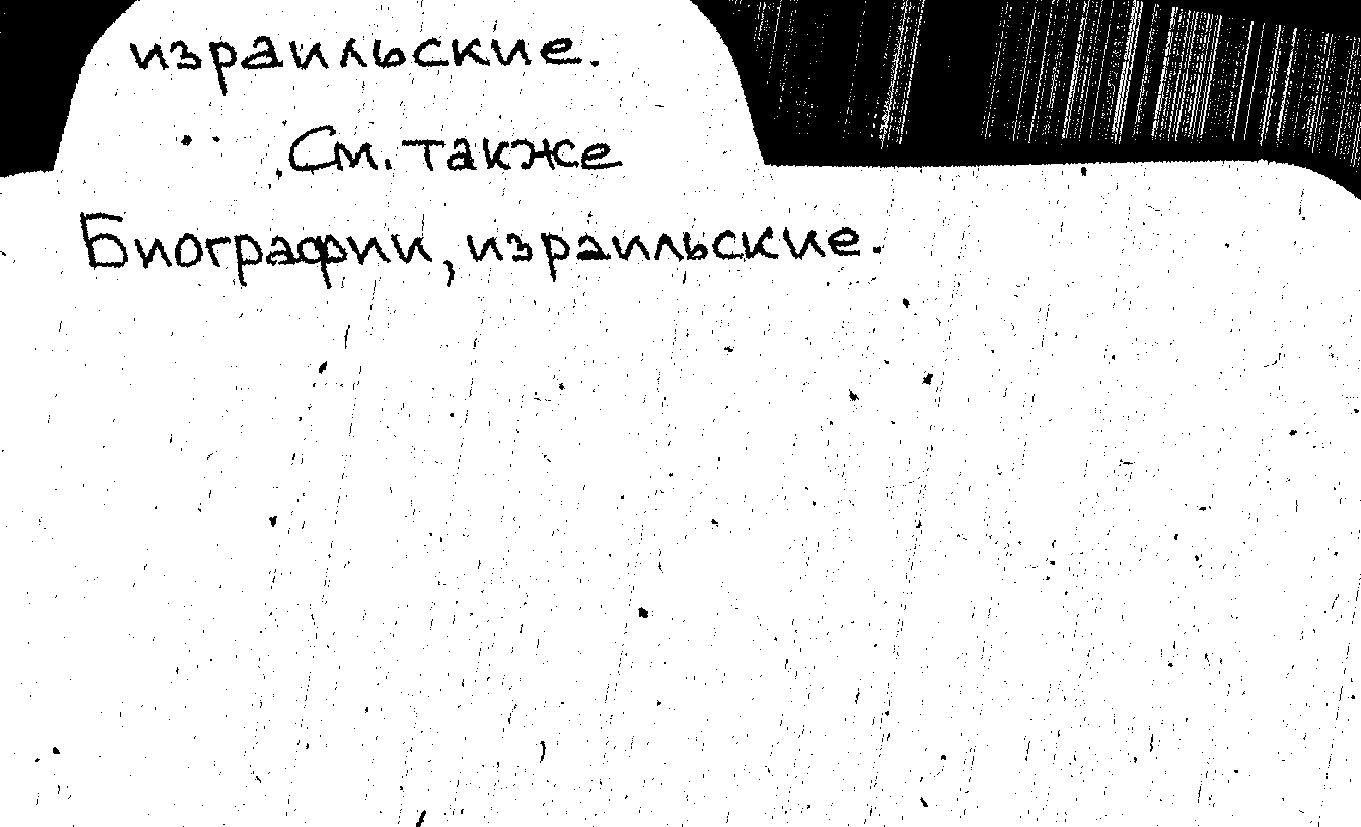 израильские.
См. также
Биографии, израильские.